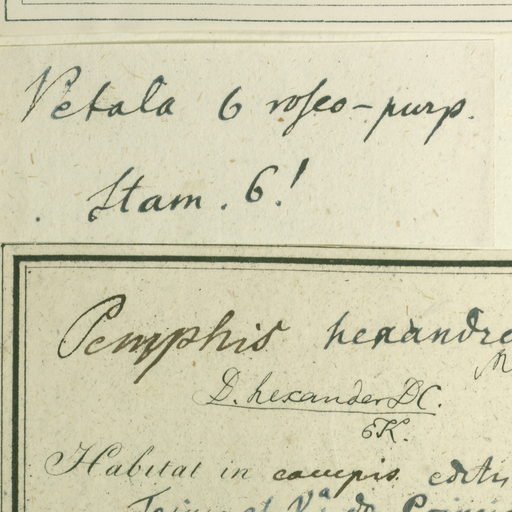 Petala 6 roseo-purp.
Stam. 6!
Pemphis hexandra
D. hexander DC.
6K.
Habitat in campis editis
et Va do